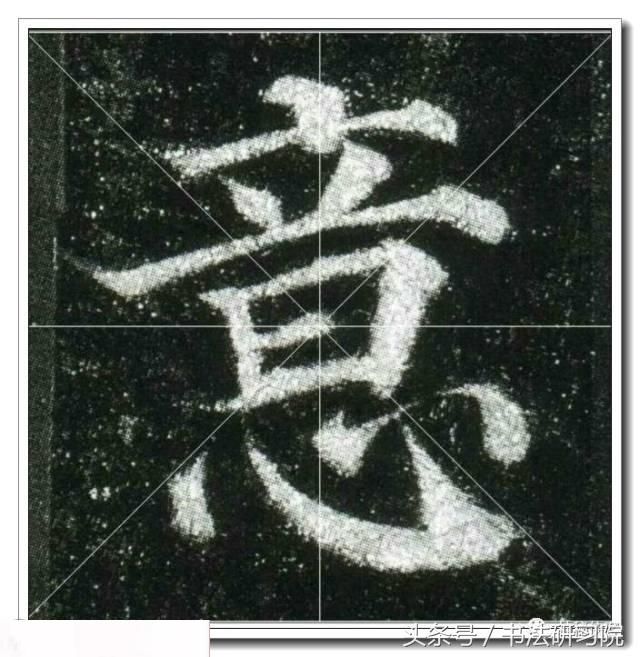 意
头条号 / 书法研习院